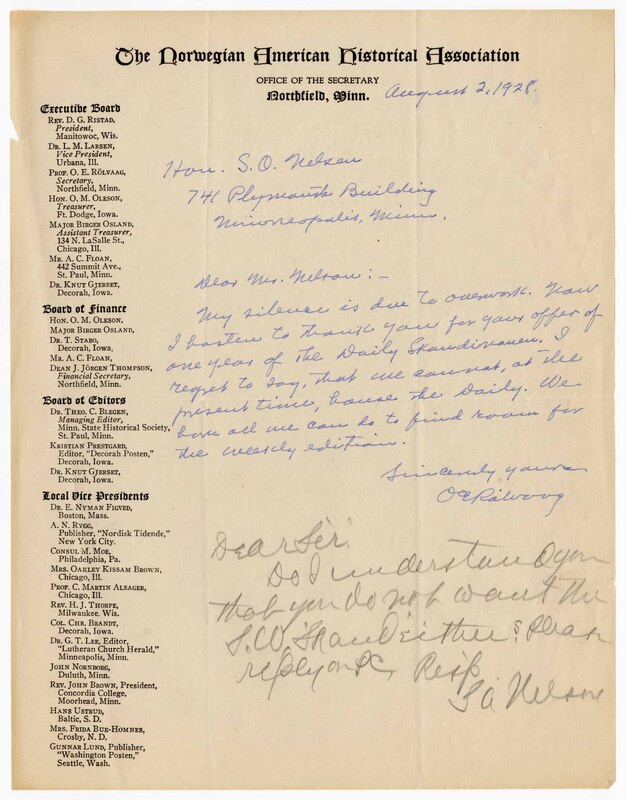 The Norwegian American Historical Association
OFFICE OF THE SECRETARY
Northfield, Minn.
August 2, 1928.
Executive Board
REV. D. G. RISTAD,
President,
Manitowoc, Wis.
DR. L. M. LARSEN,
Vice President,
Urbana, Ill.
PROF. O. E. RÖLVAAG,
Secretary,
Northfield, Minn.
HON. O. M. OLESON,
Treasurer,
Ft. Dodge, Iowa.
MAJOR BIRGER OSLAND,
Assistant Treasurer,
134 N. LaSalle St.,
Chicago, Ill.
MR. A. C. FLOAN,
442 Summit Ave.,
St. Paul, Minn.
DR. KNUT GJERSET,
Decorah, Iowa.
Board of Finance
HON. O. M. OLESON,
MAJOR BIRGER OSLAND,
DR. T. STABO,
Decorah, Iowa,
MR. A. C. FLOAN,
DEAN J. JÖRGEN THOMPSON,
Financial Secretary,
Northfield, Minn.
Board of Editors
DR. THEO. C. BLEGEN,
Managing Editor,
Minn. State Historical Society,
St. Paul, Minn.
KRISTIAN PRESTGARD,
Editor, "Decorah Posten,"
Decorah, Iowa.
DR. KNUT GJERSET,
Decorah, Iowa.
Local Vice Presidents
DR. E. NYMAN FIGVED,
Boston, Mass.
A. N. RYGG,
Publisher, "Nordisk Tidende,"
New York City.
CONSUL M. MOE,
Philadelphia, Pa.
MRS. OAKLEY KISSAM BROWN,
Chicago, Ill.
PROF. C. MARTIN ALSAGER,
Chicago, Ill.
REV. H. J. THORPE,
Milwaukee. Wis.
COL. CHR. BRANDT,
Decorah, Iowa.
DR. G. T. LEE, Editor,
"Lutheran Church Herald,"
Minneapolis, Minn.
JOHN NORNBORG,
Duluth, Minn.
REV. JOHN BROWN, President,
Concordia College,
Moorhead, Minn.
HANS USTRUD,
Baltic, S. D.
MRS. FRIDA BUE-HOMNES,
Crosby, N. D.
GUNNAR LUND, Publisher,
"Washington Posten,"
Seattle, Wash.
Hon. S. O. Nelsen
741 Plymouth Building
Minneapolis, Minn.
Dear Mr. Nelson:-
My silence is due to overwork. Now
I hasten to thank you for your offer of
one year of the Daily Skandinaven. I
regret to say, that we cannot, at the
present time, house the Daily. We
have all we can do to find room for
the weekly edition.
Sincerely yours
OE Rölvaag
Dear Sir.
Do I understand you
that you do not want the
S.W. Skand either? Please
reply on PC, Resp
S O Nelson